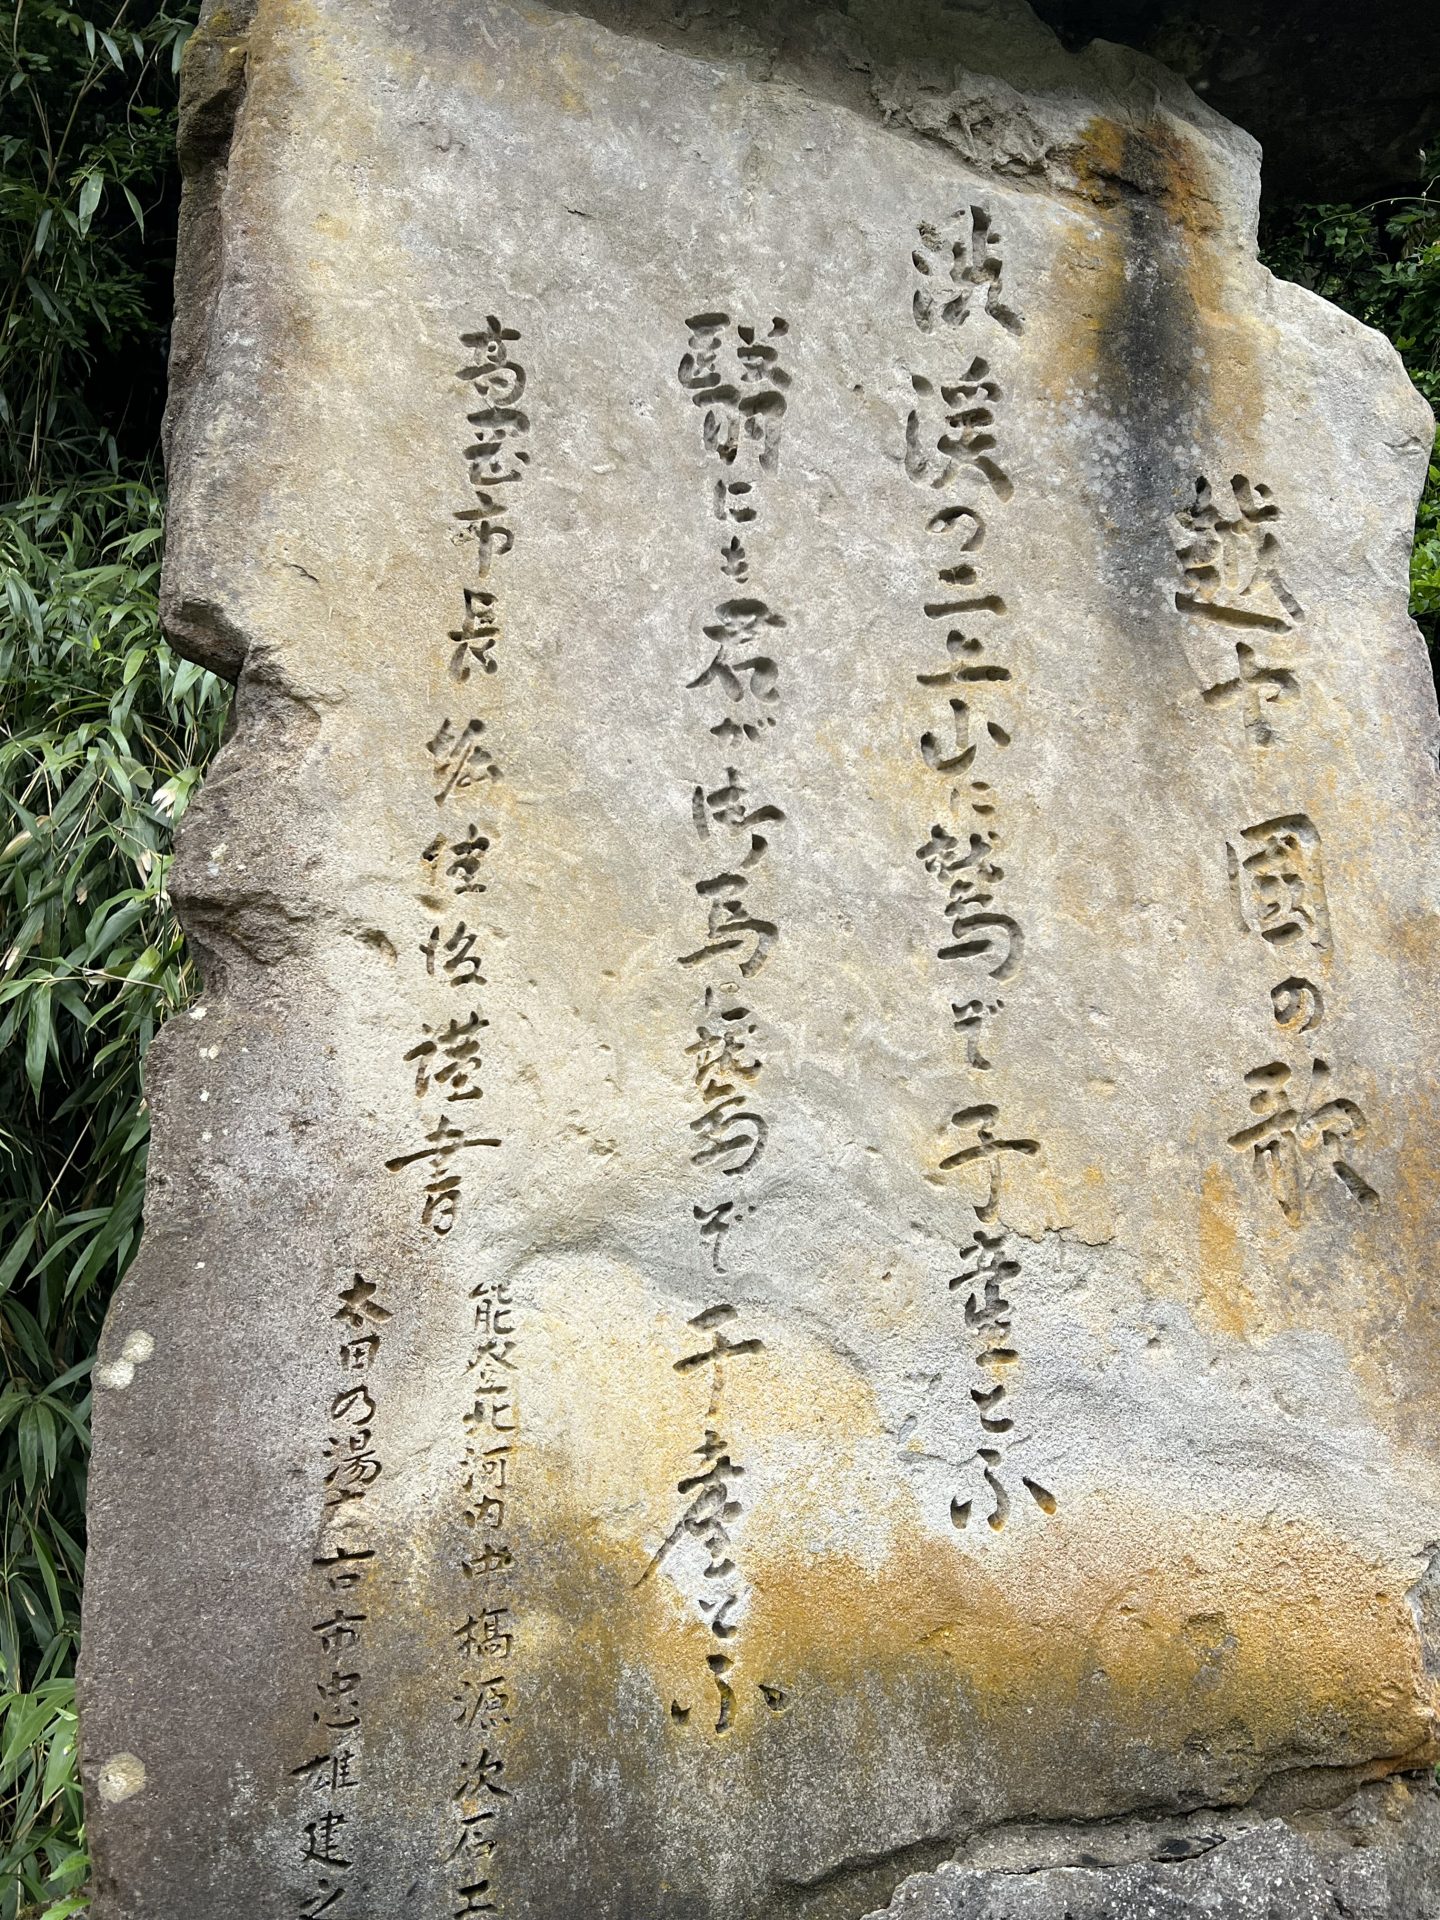 越中國の歌
渋渓の二上山に鷲ぞ子産とふ
翳にも君が御馬に鷲ぞ子産とふ
高岡市長 堀健治謹書
能登北河内 曲 橋源次石工
太田の湯 古市忠雄建之